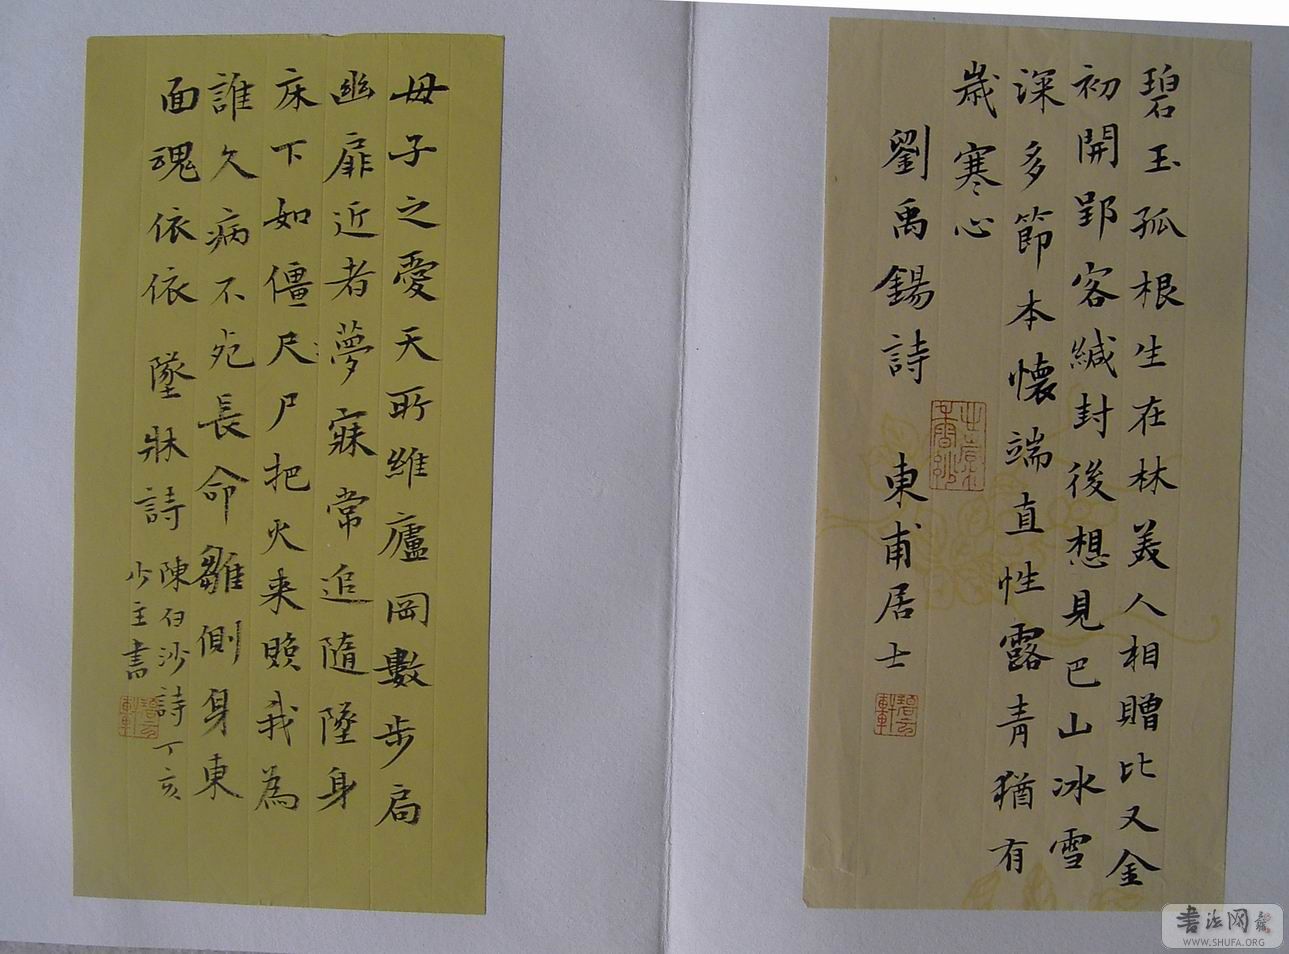 碧玉孤根生在林美人相贈比又金
初開郢客緘封後想見巴山冰雪
深多節本懷端直性露青猶有
歲寒心
劉禹錫詩 東甫居士
碧云軒
母子之愛天所維廬岡數步局
幽扉近者夢寐常追隨墜身
床下如僵尺尸把火来照我為
誰久病不死長命雛側身東
面魂依依 墜牀詩 陳白沙詩丁亥
少主書
碧云軒
书法网
WWW.SHUFA.ORG